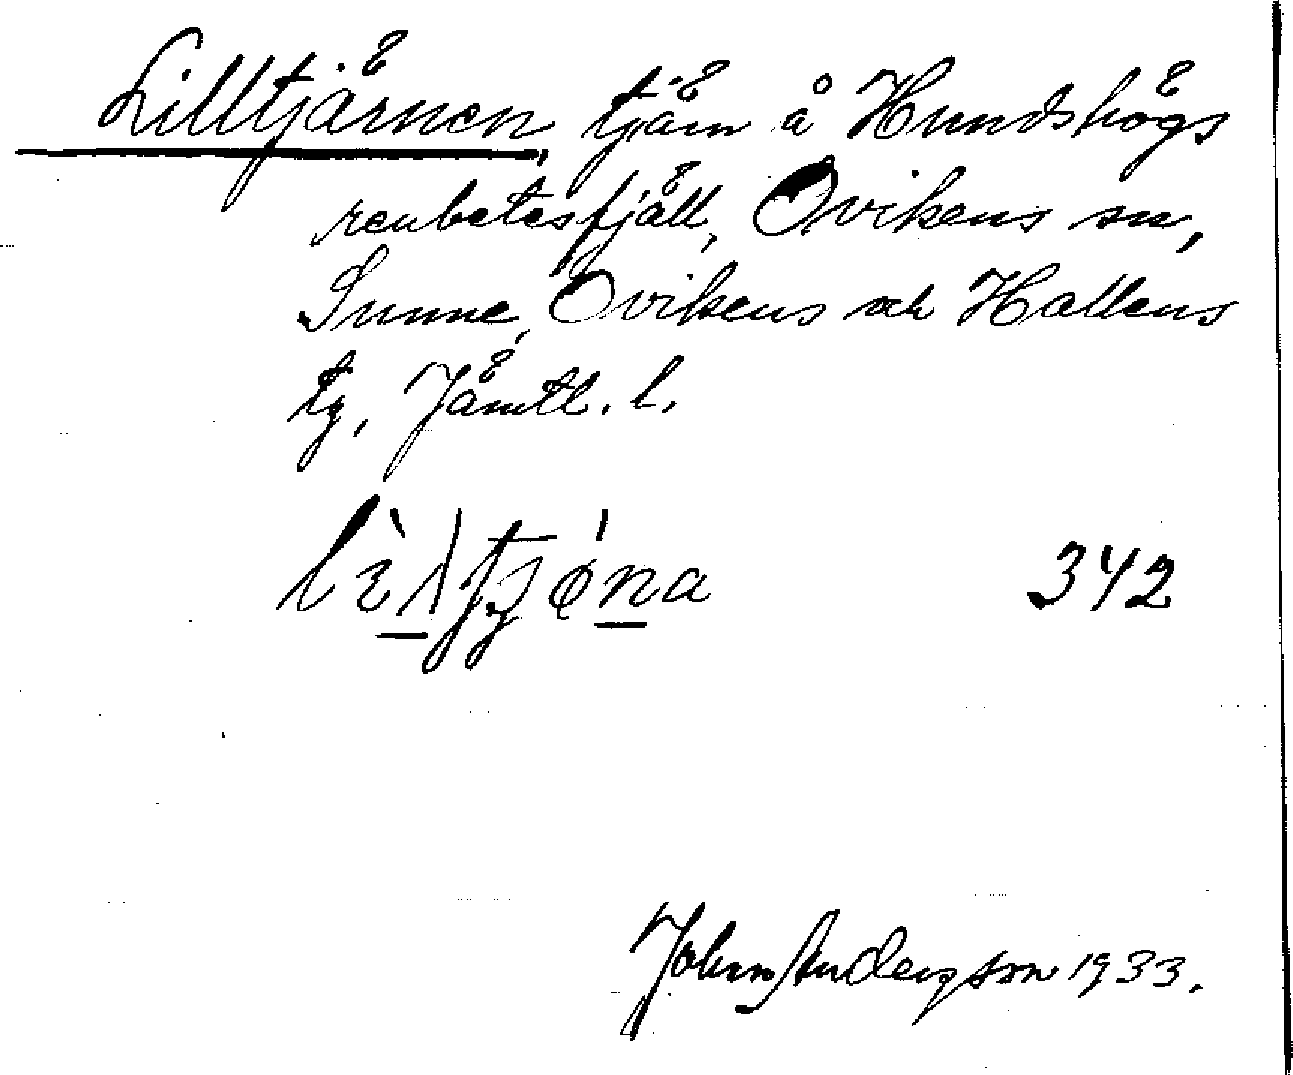 Lilltjärnen, tjärn å Hundshögs
renbetesfjäll, Ovikens sn,
Sunne, Ovikens och Hallens
tg, Jämtl. l.
342
John Anderson 1933.